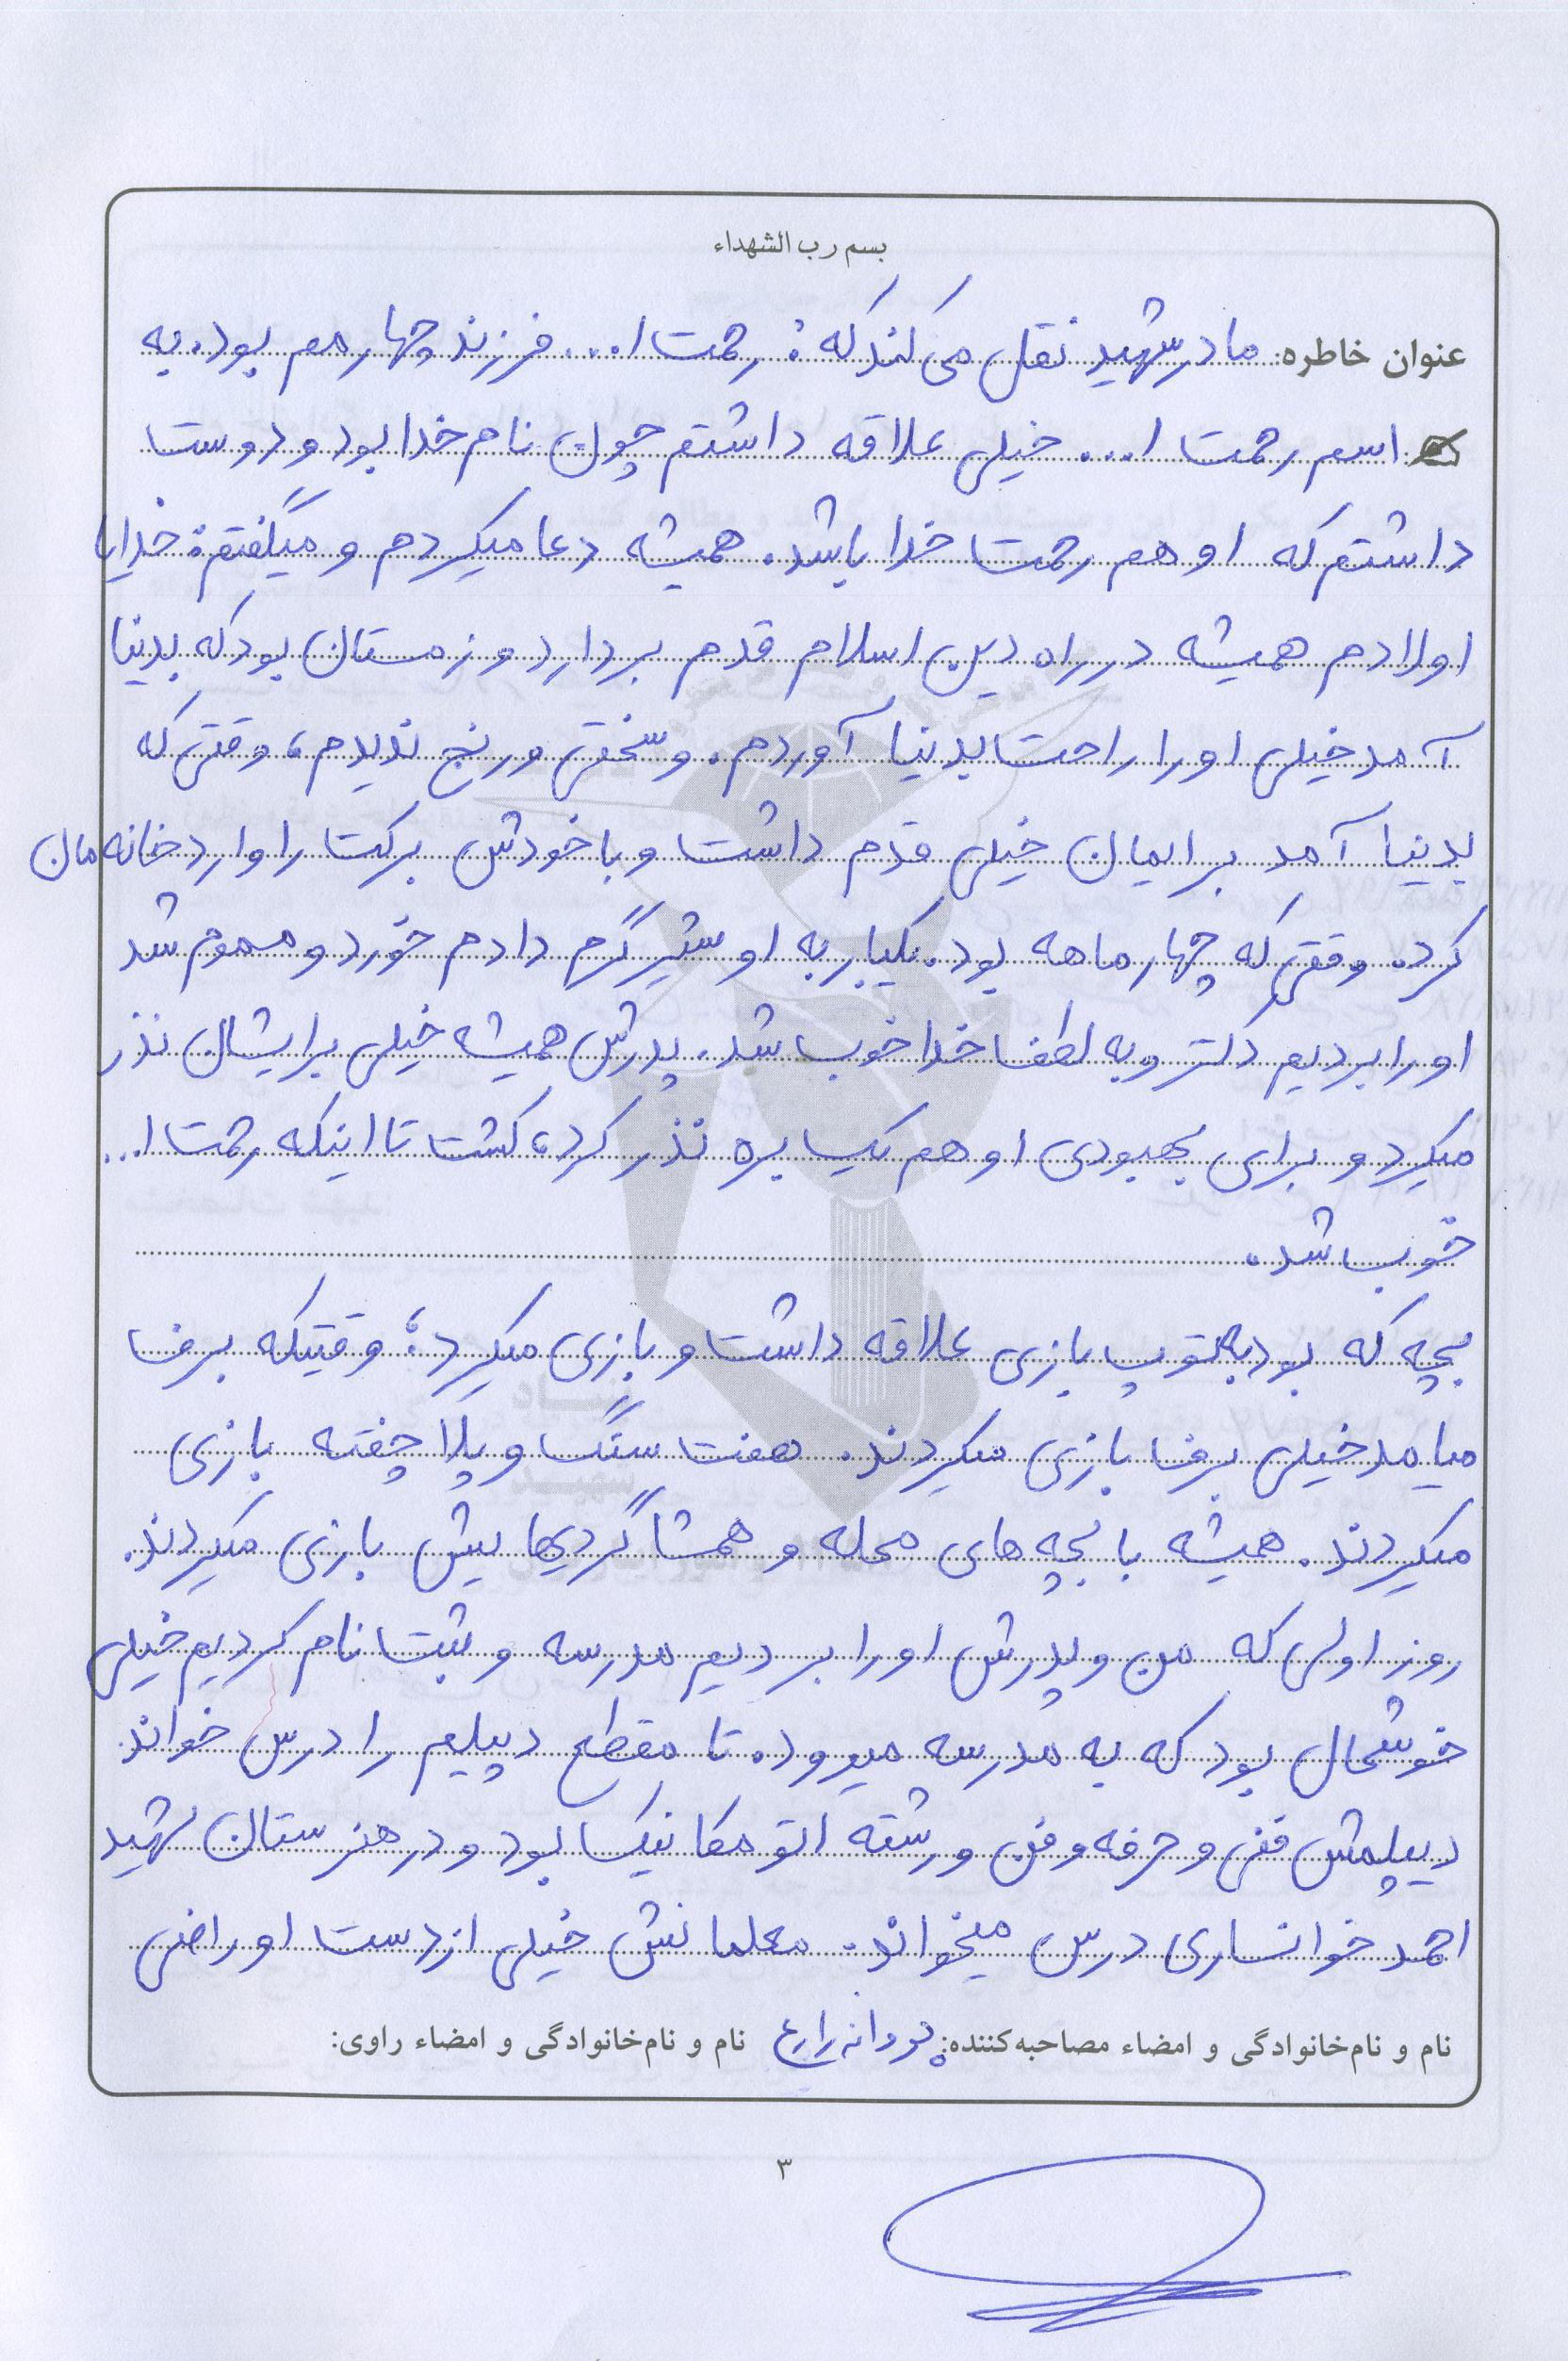 بسم رب الشهداء
عنوان خاطره: مادر شهید نقل می کند که: رحمت ا... فرزند چهارمم بود. به
اسم رحمت ا... خیلی علاقه داشتم چون نام خدا بود و دوست
داشتم که او هم رحمت خدا باشد. همیشه دعا میکردم و میگفتم: خدایا
اولادم همیشه در راه دین اسلام قدم بردارد و زمستان بود که بدنیا
آمد خیلی او را راحت بدنیا آوردم. و سختی و رنج ندیدم، وقتی که
بدنیا آمد برایمان خیلی قدم داشت و با خودش برکت را وارد خانه مان
کرد. وقتی که چهار ماهه بود. یکبار به او شیر گرم دادم خورد و مموم شد
او را بردیم دکتر و به لطف خدا خوب شد. پدرش همیشه خیلی برایشان نذر
میکرد و برای بهبودی او هم یک بره نذر کرد، کشت تا اینکه رحمت ا...
خوب شد.
بچه که بود به توپ بازی علاقه داشت و بازی میکرد؛ وقتیکه برف
میامد خیلی برف بازی میکردند. هفت سنگ و پلا چفته بازی
میکردند. همیشه با بچه های محله و همشاگردیهایش بازی میکردند.
روز اولی که من و پدرش او را بردیم مدرسه و ثبت نام کردیم خیلی
خوشحال بود که به مدرسه میرود. تا مقطع دیپلم را درس خواند
دیپلمش فنی و حرفه و فن و رشته اتو مکانیک بود و در هنرستان شهید
احمد خوانساری درس میخواند. معلمانش خیلی از دست او راضی
نام و نام‌خانوادگی و امضاء مصاحبه‌کننده: پروانه زارع نام و نام‌خانوادگی و امضاء راوی:
۳